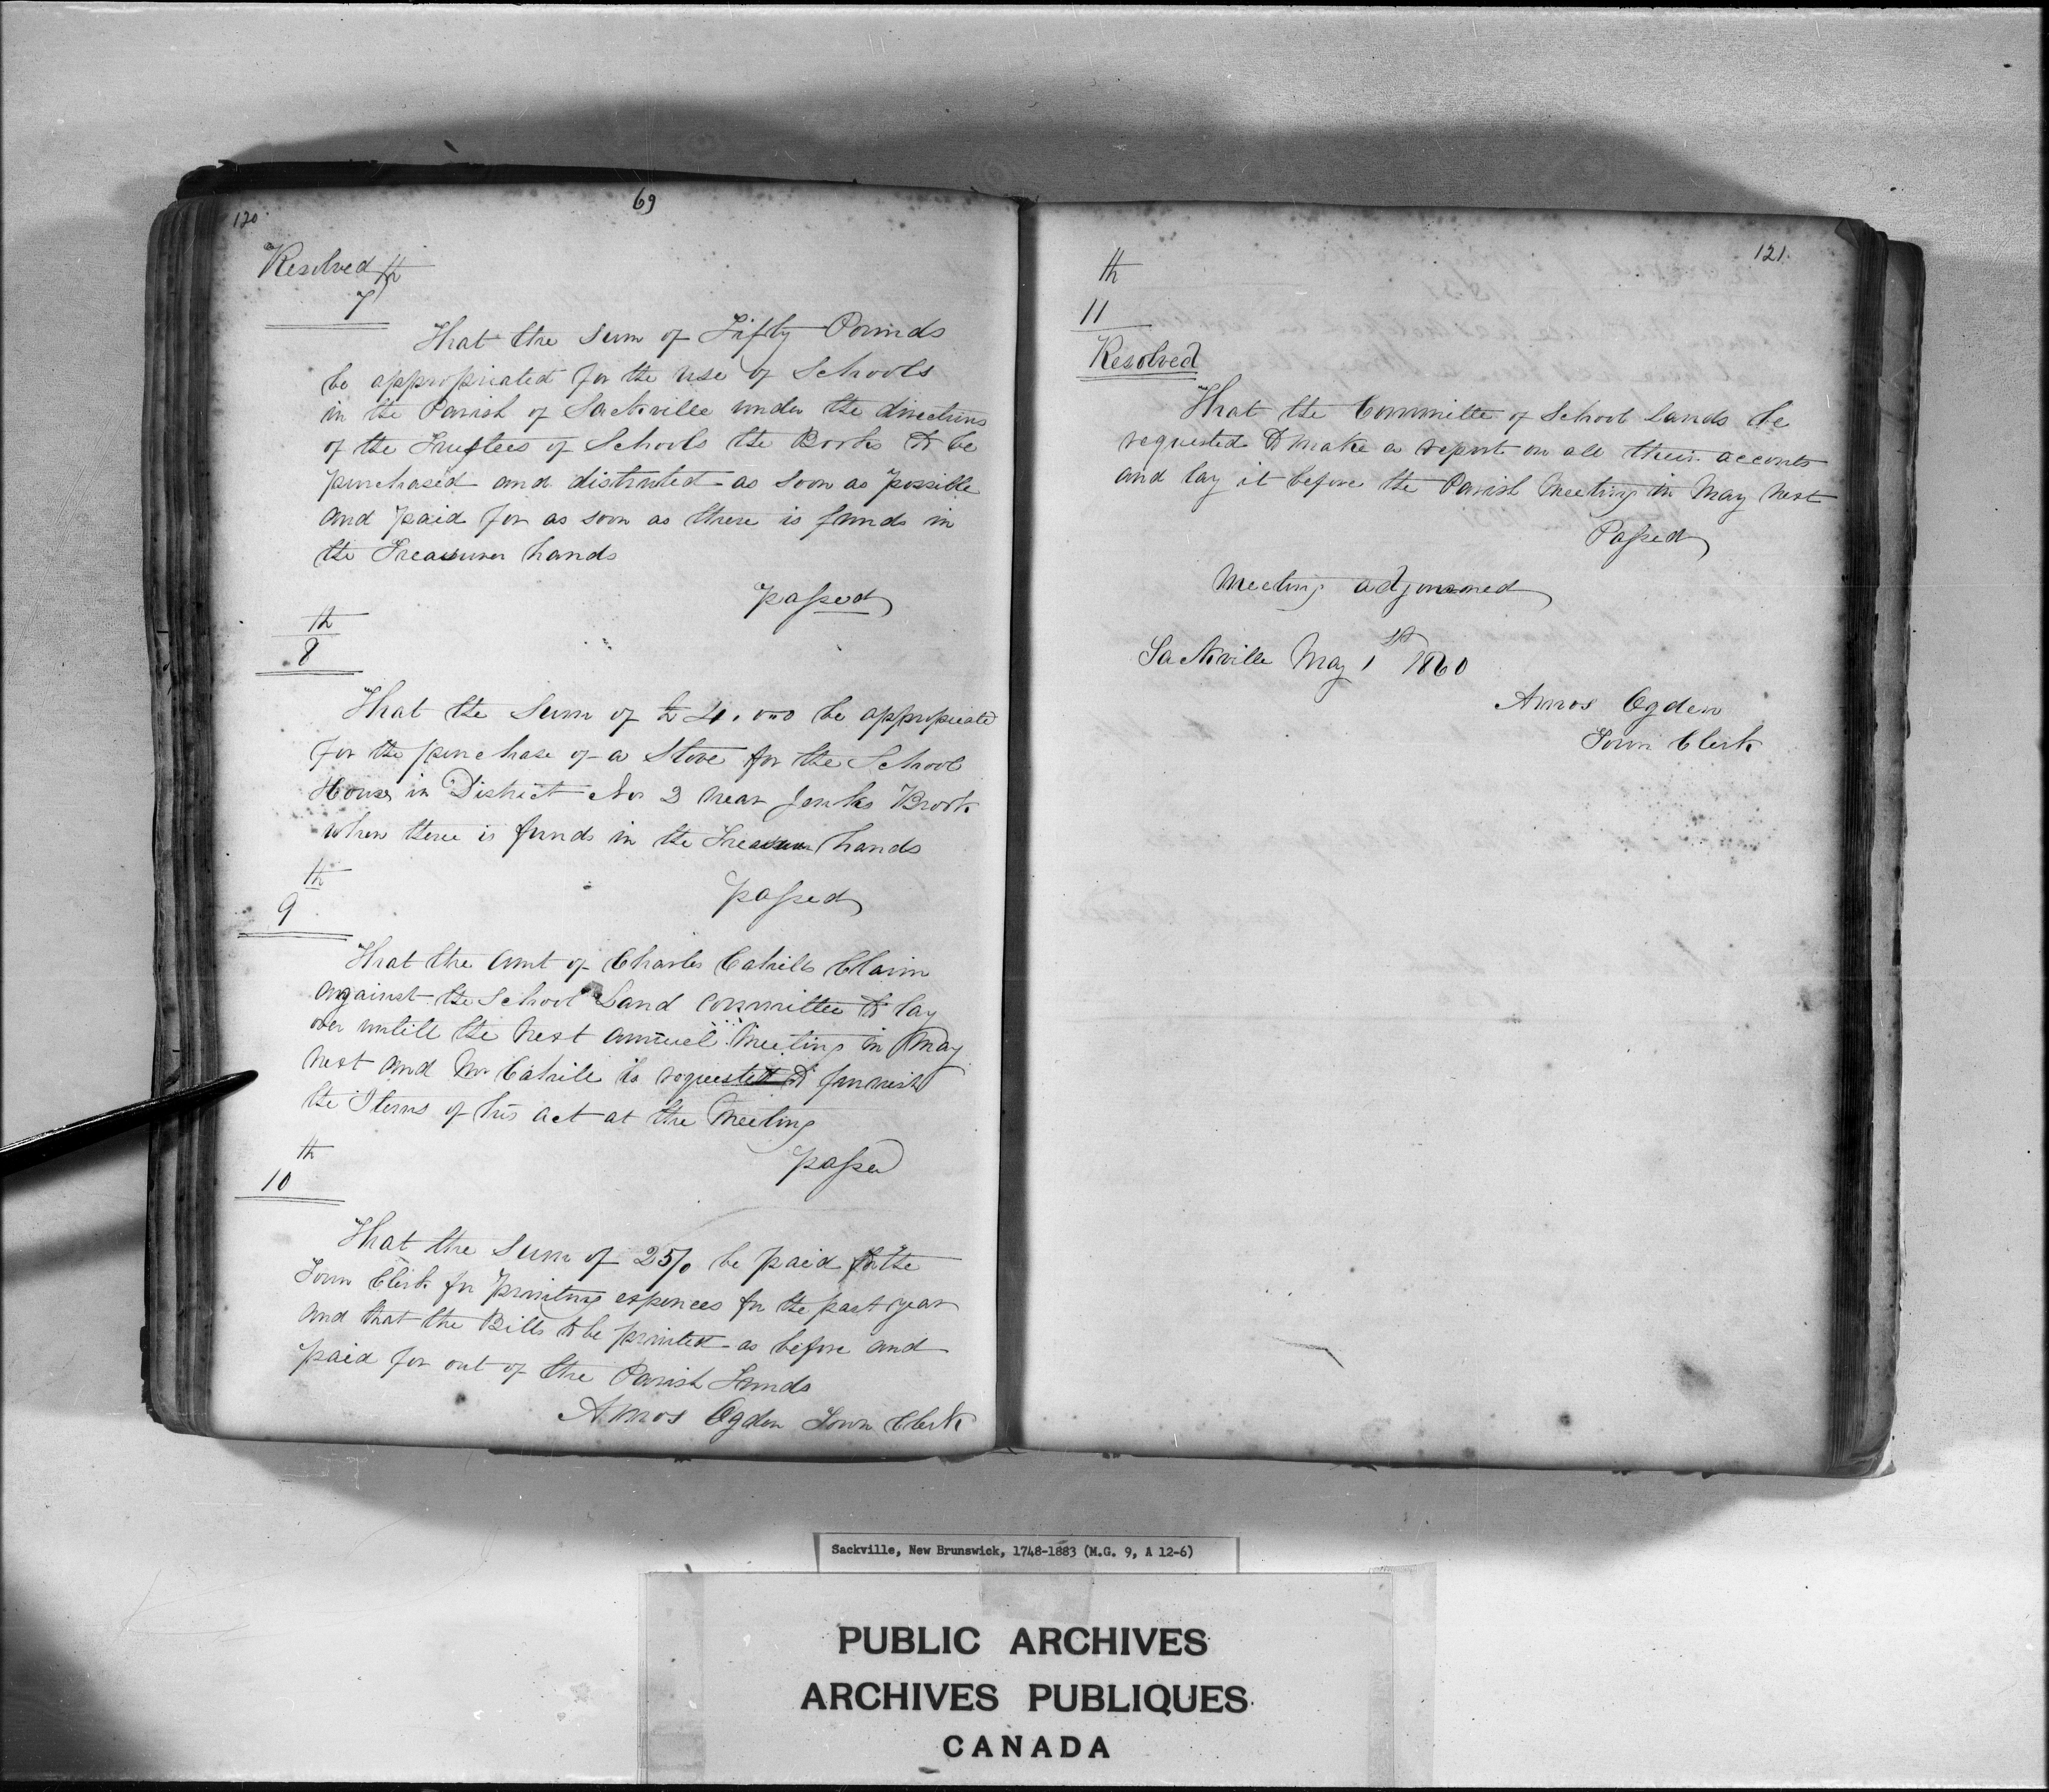 120
69
Resolved th
7
That the Sum of Fifty Pounds
be appropriated for the use of Schools
in the Parish of Sackville under the directions
of the Trustees of Schools the Books to be
purchased and distruted as soon as possible
and paid for as soon as there is funds in
the Treasurer hands
passed
th
8
That the Sum of £4.0.0 be appropriated
for the purchase of a Stove for the School
House in District No 2 near Jenks Brook
when there is funds in the Treasurer hands
passed
th
9
That the Amt of Charles Cahills Claim
against the School Land committee to lay
over untill the next annuel Meeting in May
next and Mr Cahill is requested to furnish
the Items of his act at the Meeting
passed
th
10
That the Sum of 25/0 be paid to the
Town Clerk for printing expences for the past year
and that the Bills to be printed as before and
paid for out of the Parish Funds
Amos Ogden Town Clerk
121
th
11
Resolved
That the Committe of School Lands be
requested to make a report on all their acconts
and lay it before the Parish Meeting in May next
Passed
Meeting adjourned
Sackville May 1st 1860
Amos Ogden
Town Clerk
Sackville, New Brunswick, 1748-1883 (M.G. 9, A 12-6)
PUBLIC ARCHIVES
ARCHIVES PUBLIQUES
CANADA